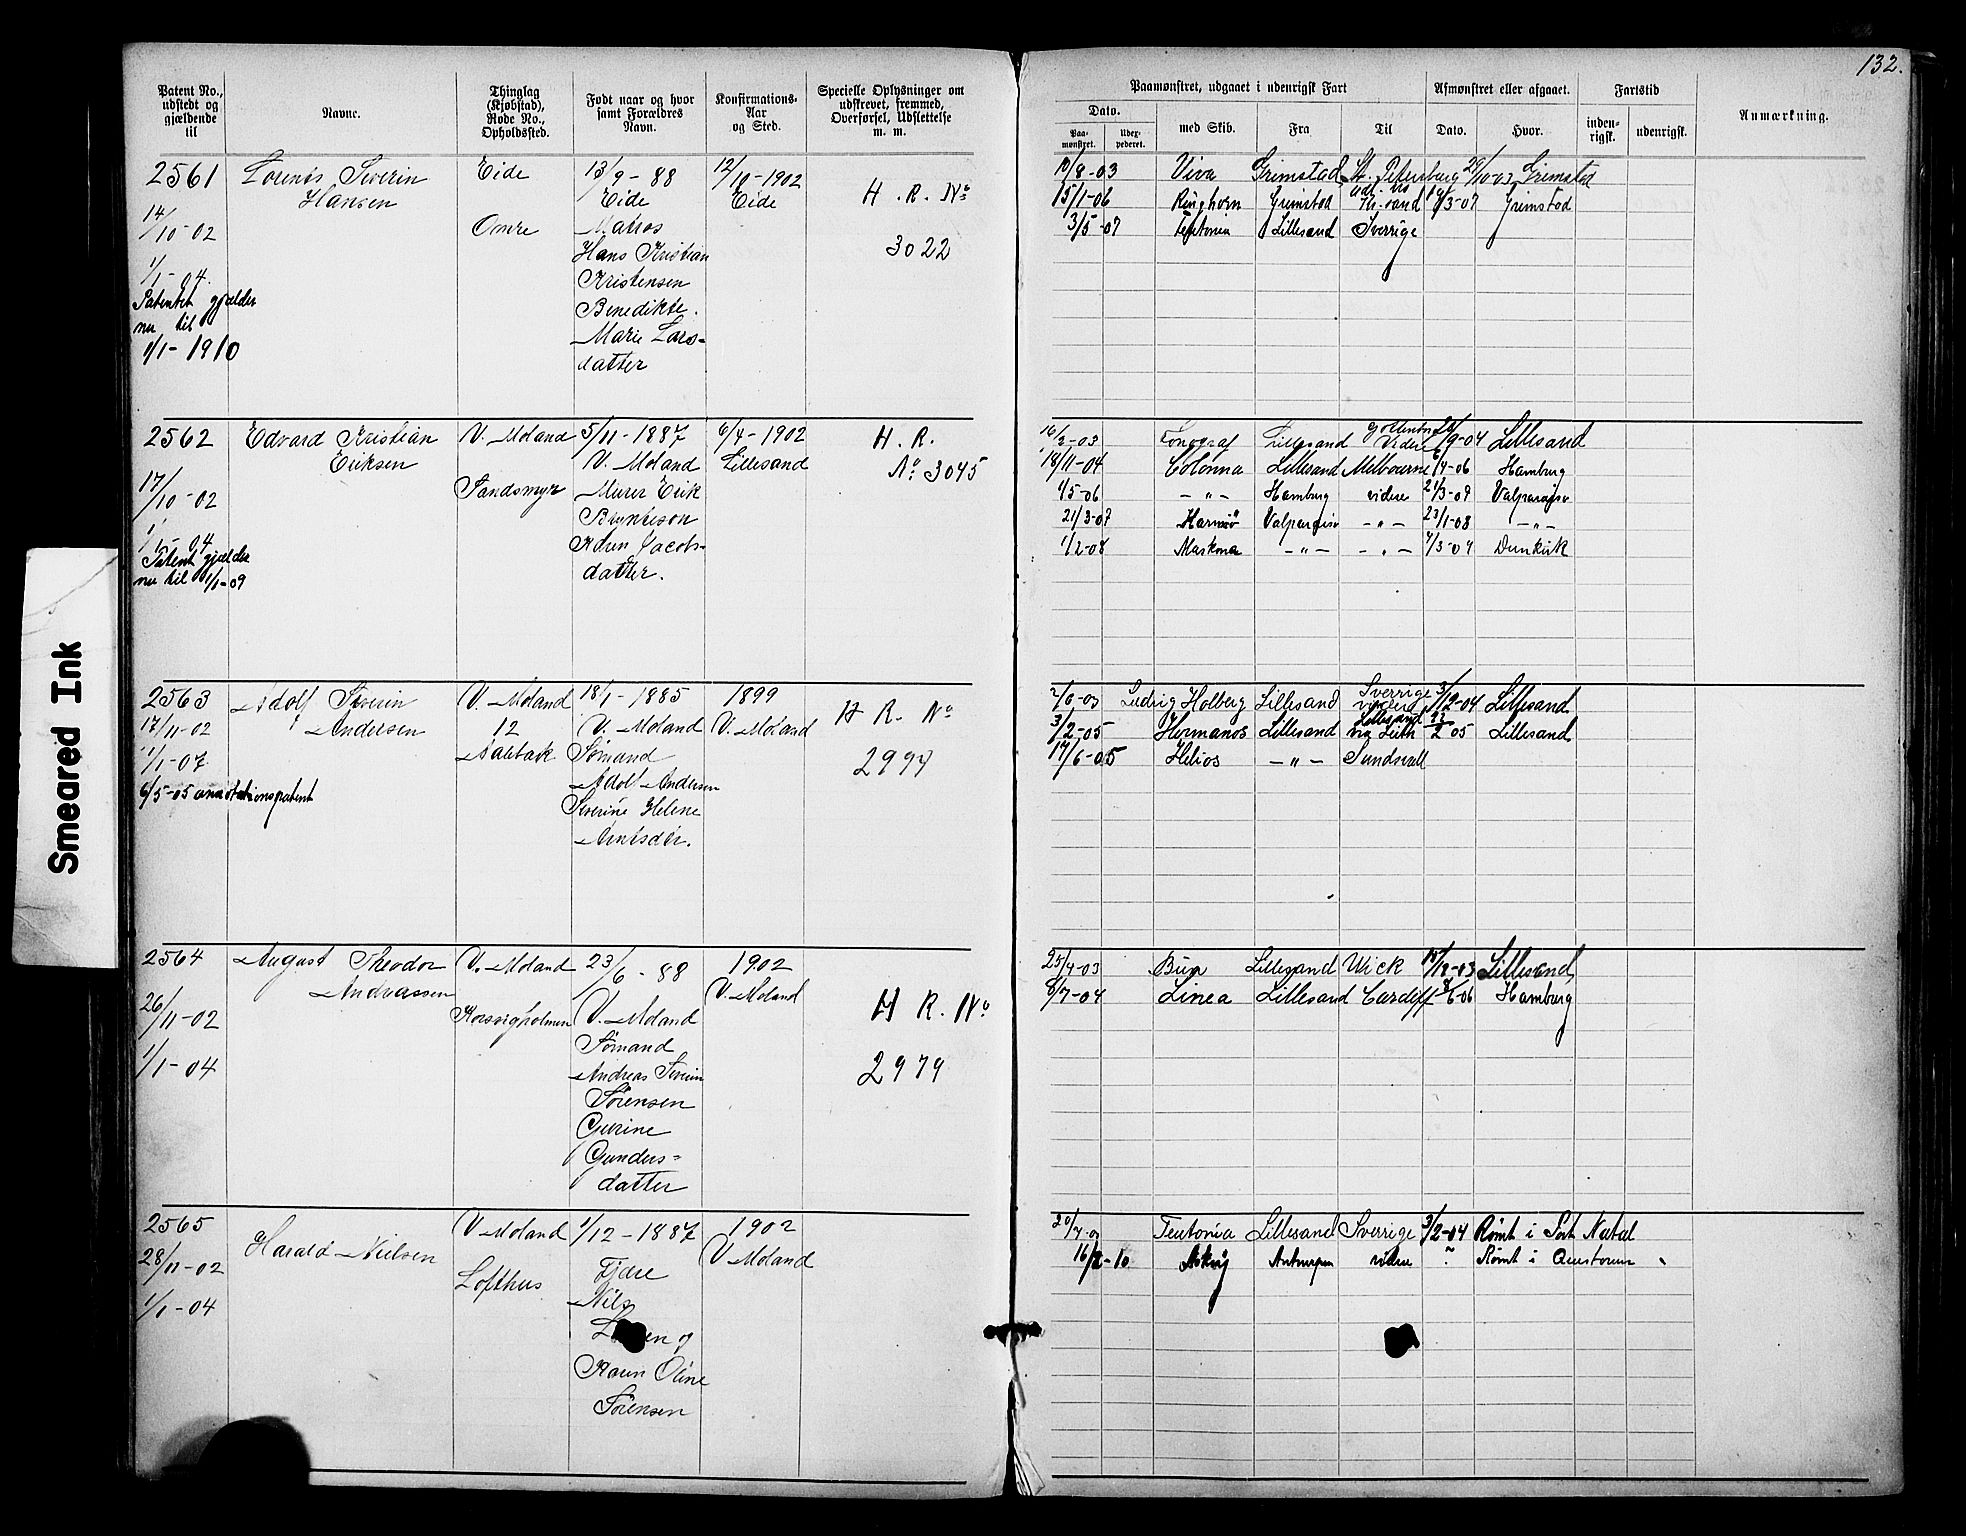 132.
Patent No., udstedt og gjældende til
Navne.
Thinglag (Kjøbstad), Rode No., Opholdssted.
Født naar og hvor samt Forældres Navn.
Konfirmations-Aar og Sted.
Specielle Oplysninger om udskrevet, fremmed, Overførsel, Udslettelse m. m.
Paamønstret, udgaaet i udenrigsk Fart
Afmønstret eller afgaaet.
Fartstid
Anmærkning.
Dato.
Paa-mønstret.
Udex-pederet.
med Skib.
Fra
Til
Dato.
Hvor.
inden-rigsk.
udenrigsk.
2561
14/10-02
1/1-04.
Patentet gjælder
nu til
1/1-1910
Lorents Severin
Hansen
Eide
Omre
13/9-88
Eide
Matros
Hans Kristian
Kristensen
Benedikte
Marie Lars-
datter
12/10-1902
Eide
H. R. No
3022
10/8-03 Viva Grimstad St. Petersburg 29/10-03 Grimstad
15/1-06 Ringhorn Grimstad Kr.sand 19/3-07 Grimstad
3/5-07 Teutonia Lillesand Sverrige
2562
17/10-02
1/1-04
Patent gjælder
nu til 1/1-09
Edvard Kristian
Eriksen
V. Moland
Sandsmyr
5/11-1887
V. Moland
Murer Erik
Brynteson
Karen Jacobs-
datter.
6/4-1902
Lillesand
H. R.
No 3045
16/2-03 Fonograf Lillesand Videre /9-04 Lillesand
18/11-04 Colonna Lillesand Melbourne 6/4-06 Hamburg
1/5-06 -"- Hamburg videre 21/3-07 Valparaiso
21/3-07 Valparaiso -"- 23/1-08 -"-
1/2-08 -"- -"- Dunkirk
2563
17/11-02
1/1-07
6/5-05 annotationspatent
Adolf Severin
Andersen
V. Moland
12
Aalebæk
18/1-1885
V. Moland
Sømand
Adolf Andersen
Severine Helene
Arntsdtr.
1899
V. Moland
H R. No
2997
2/6-03 Ludvig Holberg Lillesand Sverrige
videre 3/12-04 Lillesand
3/2-05 Hermanos Lillesand Lillesand
via Leith 23/2 05 Lillesand
17/6-05 Helios -"- Sundsvall
2564
26/11-02
1/1-04
August Theodor
Andreassen
V. Moland
Korsvigholmen
23/6-88
V. Moland
Sømand
Andreas Severin
Sørensen
Gurine
Gunders-
datter
1902
V. Moland
H R. No
2979
25/4-03 Lillesand Wick 15/12-03 Lillesand
8/7-04 Linea Lillesand Cardiff 8/6-06 Hamburg
2565
28/11-02
1/1-04
Harald Nielsen
V. Moland
Lofthus
1/12-1887
Fjære
Nils
og
Karen Oline
Sørensen
1902
V. Moland
Teutonia Lillesand Sverrige 3/2-04 Rømt i Port Natal
Antwerpen videre Rømt i
Smeared Ink